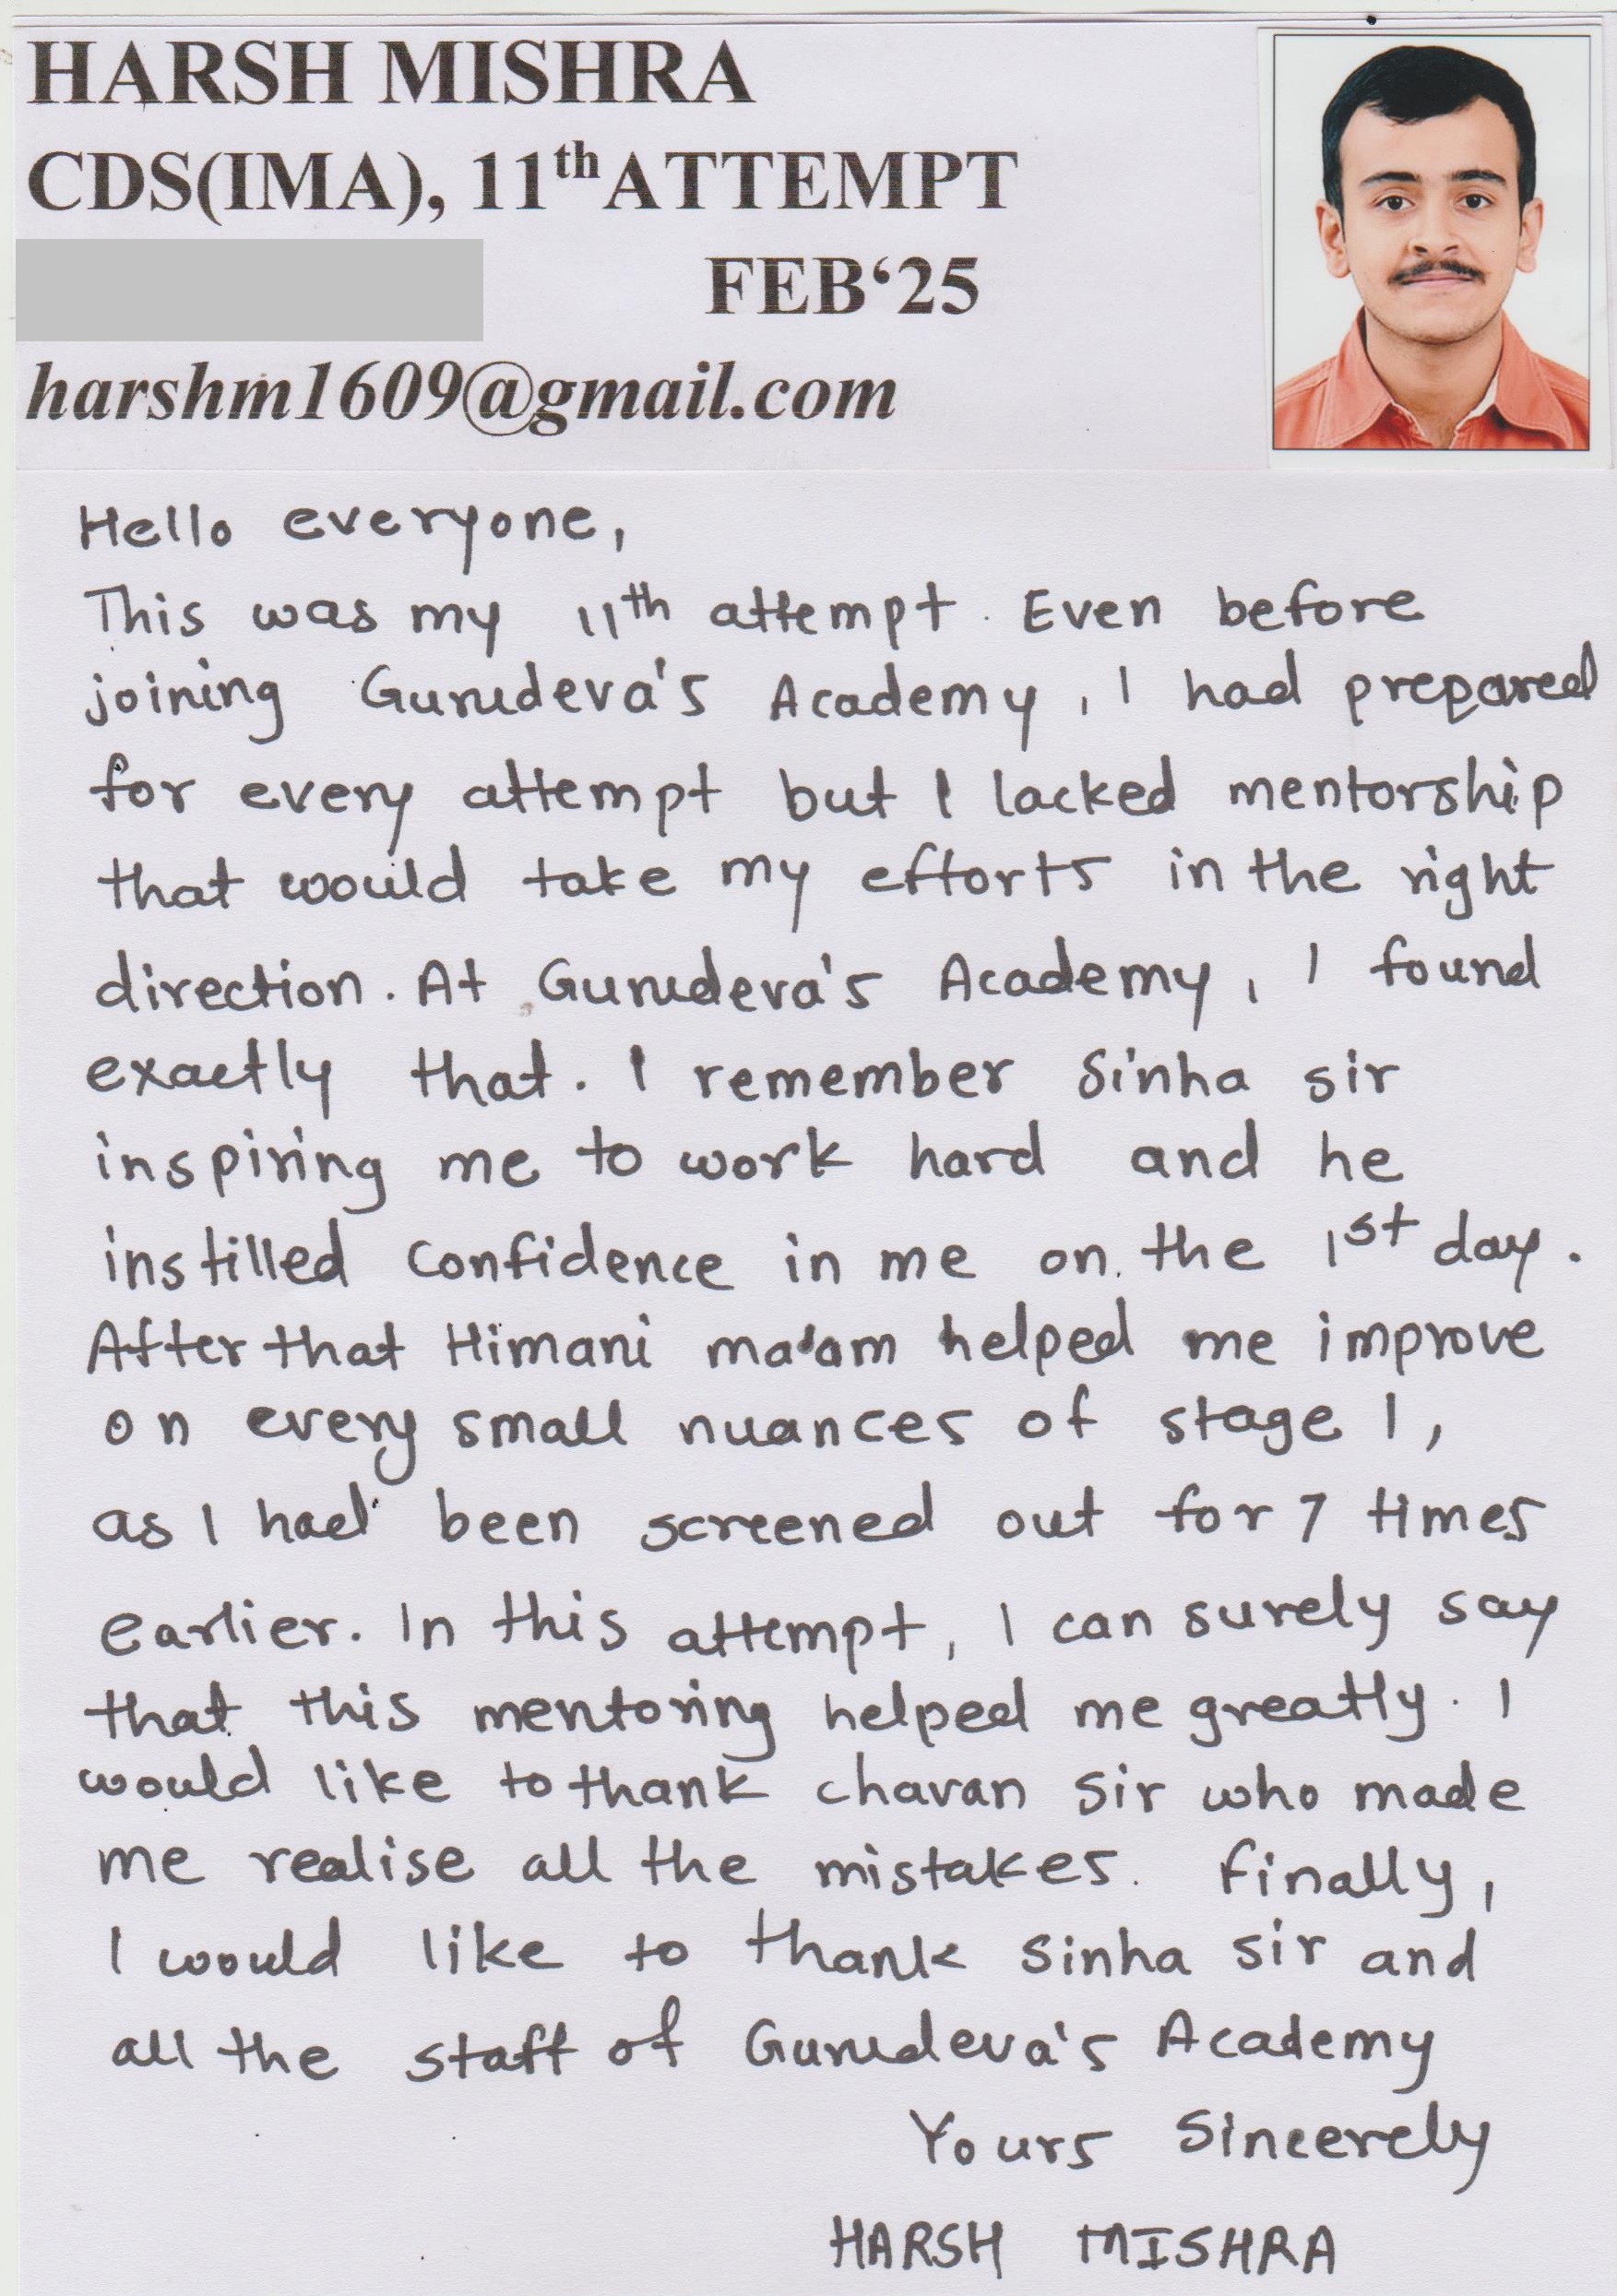 HARSH MISHRA
CDS(IMA), 11th ATTEMPT
FEB‘25
harshm1609@gmail.com
Hello everyone,
This was my 11th attempt. Even before
joining Gurudeva's Academy, I had prepared
for every attempt but I lacked mentorship
that would take my efforts in the right
direction. At Gurudeva's Academy, I found
exactly that. I remember Sinha sir
inspiring me to work hard and he
instilled confidence in me on the 1st day.
After that Himani ma'am helped me improve
on every small nuances of stage 1,
as I had been screened out for 7 times
earlier. In this attempt, I can surely say
that this mentoring helped me greatly. I
would like to thank chavan sir who made
me realise all the mistakes. Finally,
I would like to thank Sinha sir and
all the staff of Gurudeva's Academy
Yours Sincerely
HARSH MISHRA